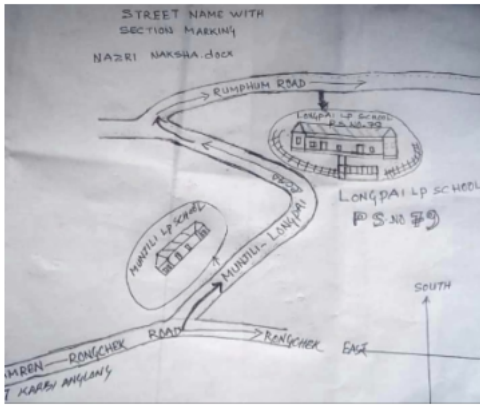 STREET NAME WITH
SECTION MARKING
NAZRI NAKSHA.docx
RUMPHUM ROAD
LONGPAI LP SCHOOL
PS. NO. 79
LONGPAI LP SCHOOL
PS NO 79
MUNJILI LP SCHOOL
MUNJILI-LONGPAI ROAD
SOUTH
AMREN RONGCHEK ROAD
RONGCHEK
EAST
T KARBI ANGLONG